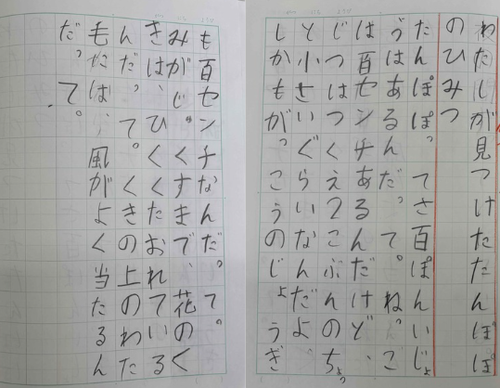 わたしが見つけたたんぽぽ
のひみつ
たんぽぽってさ百ぽんいじょ
うはあるんだって。ねっこ
は百センチあるんだけど、
じつはつくえ2こぶんのちょっ
と小さいぐらいなんだよ
しかもがっこうのじょうぎ
も百センチなんだって。
みがじゅくすまで、花のく
きは、ひくくたおれている
んだって。くきの上のわた
毛たば、風がよく当たるん
だって。